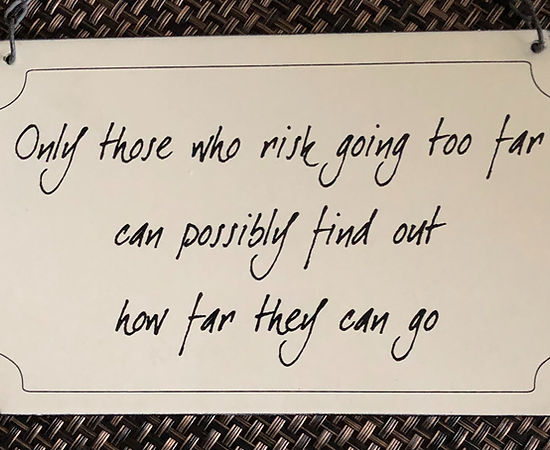 Only those who risk going too far
can possibly find out
how far they can go